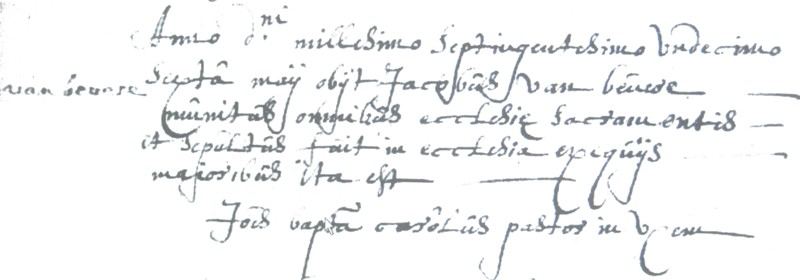 Anno dni millesimo septingentesimo undecimo
van bevere septa maij obijt Jacobus van bevere
munitus omnibus ecclesię sacramentis
et sepultus fuit in ecclesia exequijs
majoribus ita est
Joes bapta carolus pastor in